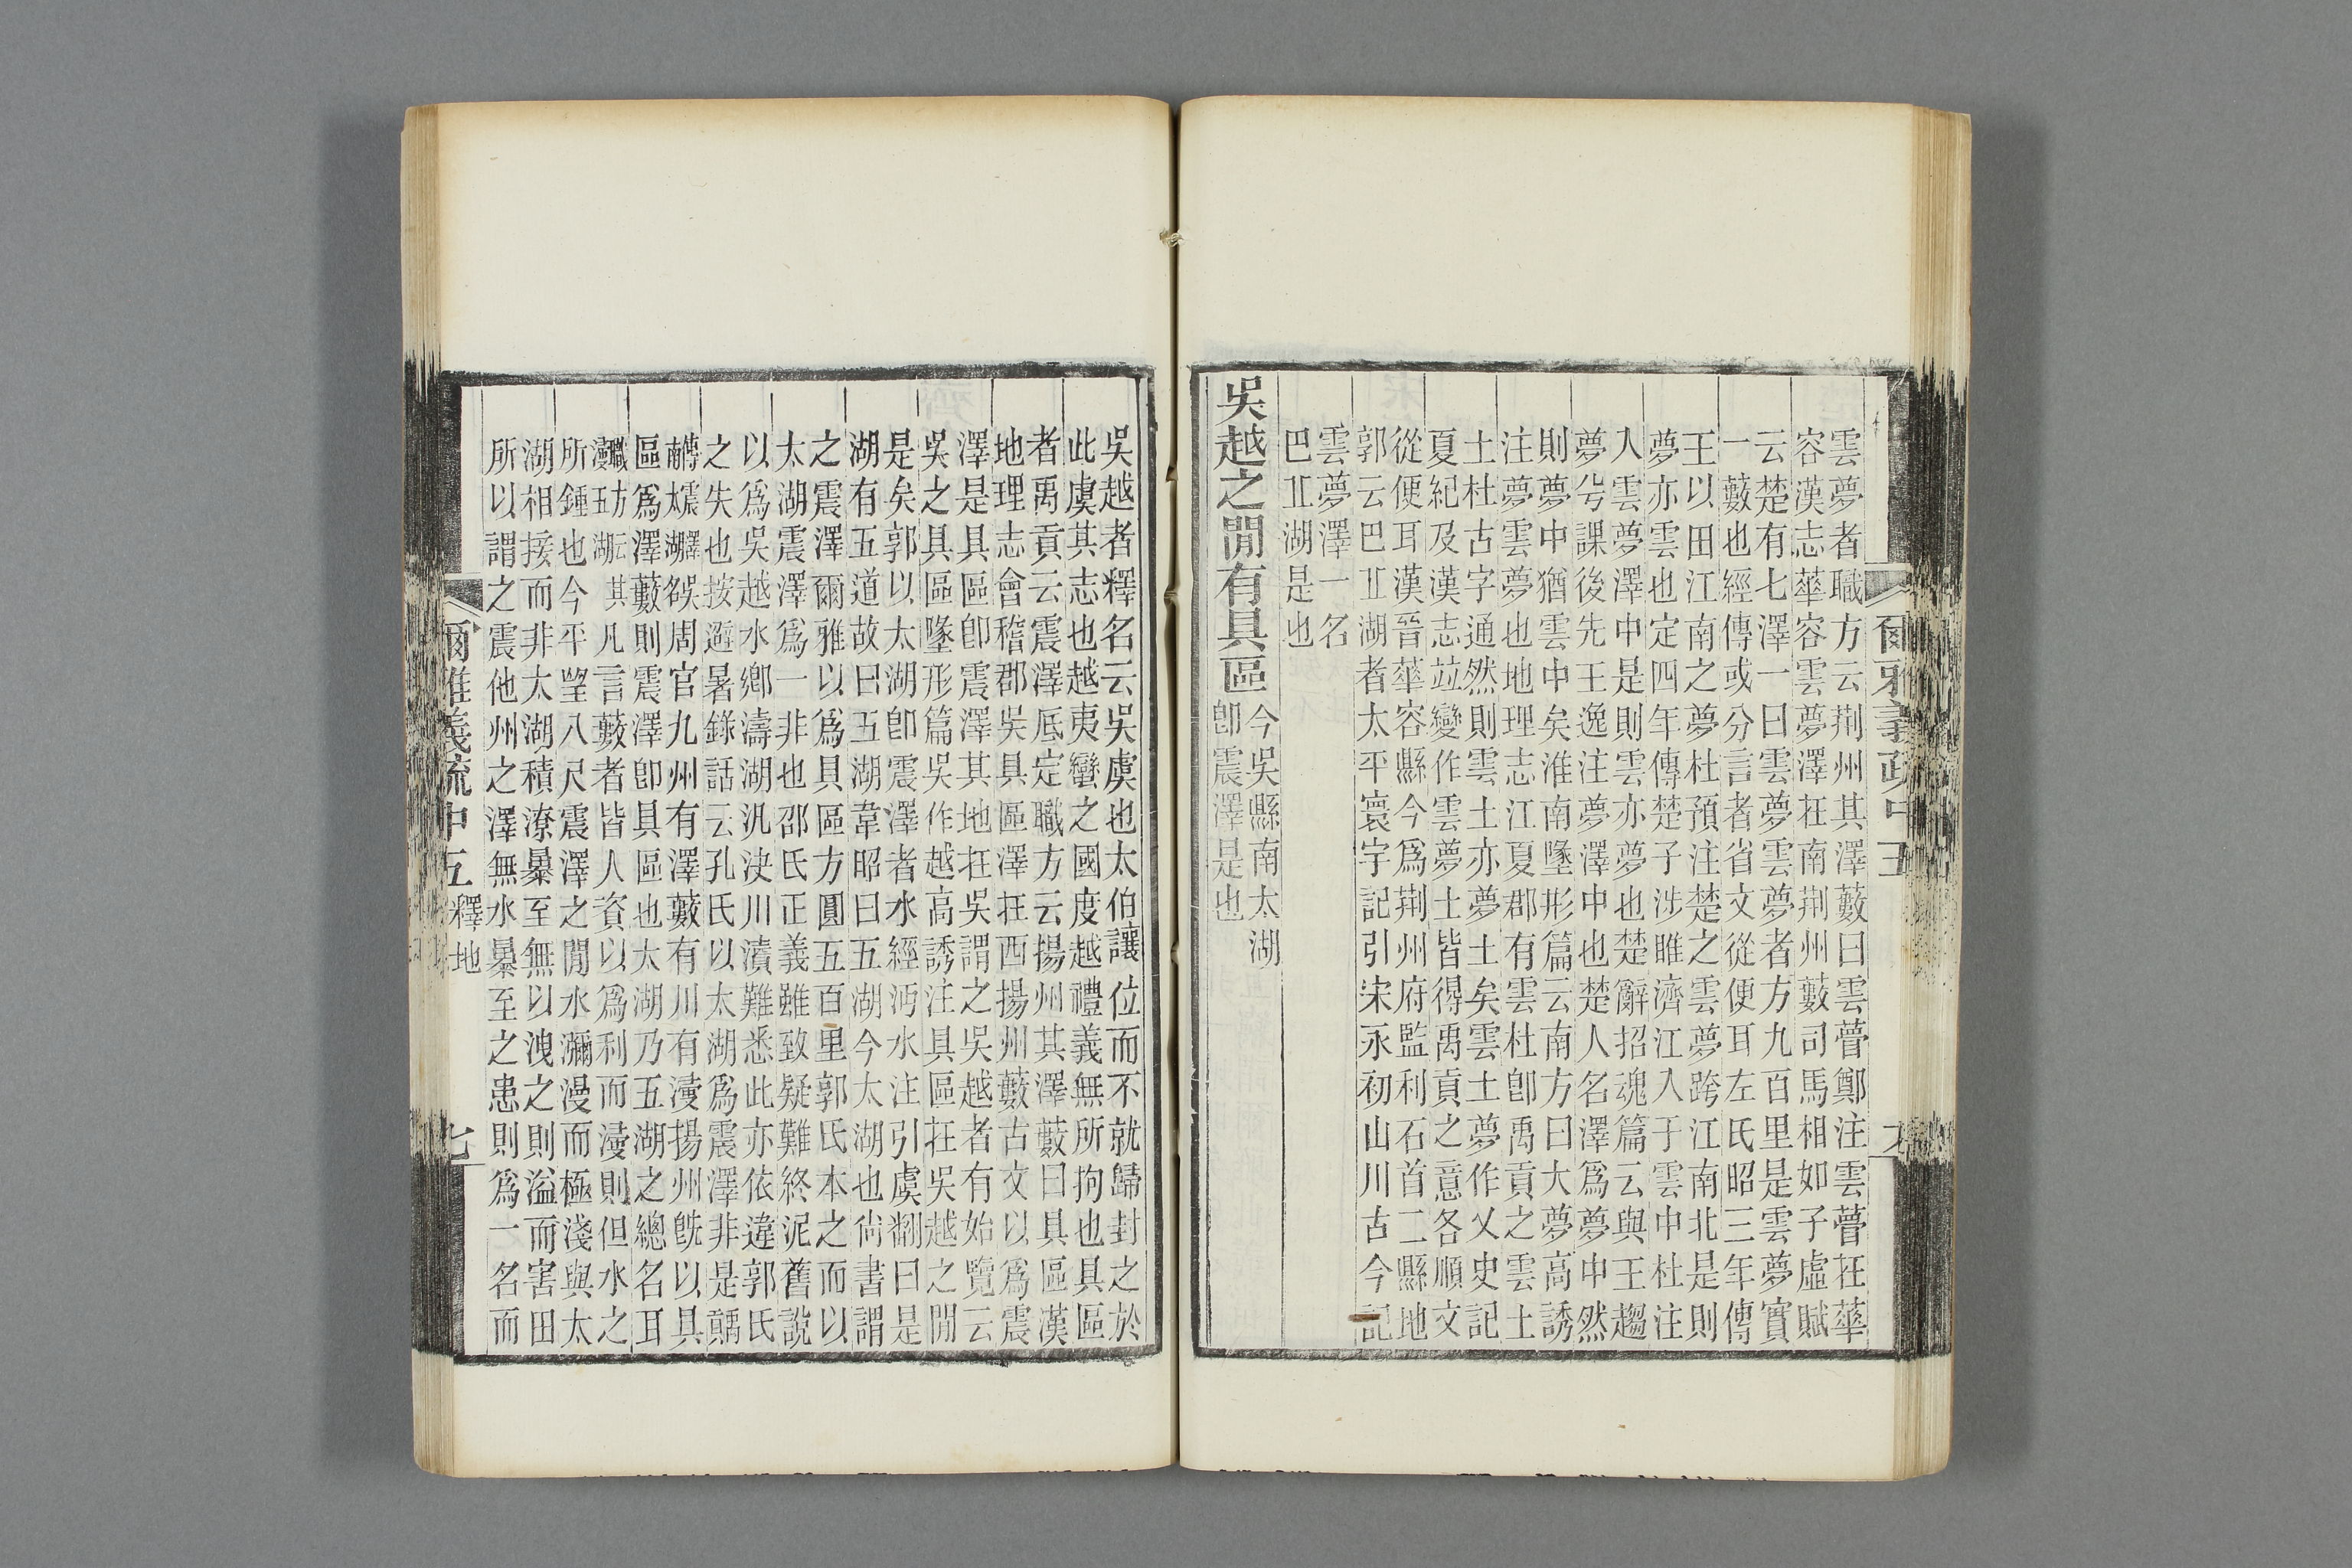 爾雅義疏中五
雲夢者職方云荆州其澤藪曰雲瞢鄭注雲瞢在華
容漢志華容雲夢澤在南荆州藪司馬相如子虛賦
云楚有七澤一曰雲夢雲夢者方九百里是雲夢實
一藪也經傳或分言者省文從便耳左氏昭三年傳
王以田江南之夢杜預注楚之雲夢跨江南北是則
夢亦雲也定四年傳楚子涉睢濟江入于雲中杜注
入雲夢澤中是則雲亦夢也楚辭招魂篇云與王趨
夢兮課後先王逸注夢澤中也楚人名澤爲夢中然
則夢中猶雲中矣淮南墬形篇云南方曰大夢高誘
注夢雲夢也地理志江夏郡有雲杜卽禹貢之雲土
土杜古字通然則雲土亦夢土矣雲土夢作乂史記
夏紀及漢志竝變作雲夢土皆得禹貢之意各順文
從便耳漢晉華容縣今爲荆州府監利石首二縣地
郭云巴丘湖者太平寰宇記引宋永初山川古今記
雲夢澤一名
巴丘湖是也
吳越之閒有具區
今吳縣南太湖
卽震澤是也
吳越者釋名云吳虞也太伯讓位而不就歸封之於
此虞其志也越夷蠻之國度越禮義無所拘也具區
者禹貢云震澤厎定職方云揚州其澤藪曰具區漢
地理志會稽郡吳具區澤在西揚州藪古文以爲震
澤是具區卽震澤其地在吳謂之吳越者有始覽云
吳之具區墬形篇吳作越高誘注具區在吳越之閒
是矣郭以太湖卽震澤者水經沔水注引虞翻曰是
湖有五道故曰五湖韋昭曰五湖今太湖也尙書謂
之震澤爾雅以爲具區方圓五百里郭氏本之而以
太湖震澤爲一非也邵氏正義雖致疑難終泥舊說
以爲吳越水鄕濤湖汎決川瀆難悉此亦依違郭氏
之失也按避暑錄話云孔氏以太湖爲震澤非是
傳震澤
南太湖
誤周官九州有澤藪有川有浸揚州旣以具
區爲澤藪則震澤卽具區也太湖乃五湖之總名耳
職方云
浸五湖
其凡言藪者皆人資以爲利而浸則但水之
所鍾也今平望八尺震澤之閒水瀰漫而極淺與太
湖相接而非太湖積潦暴至無以洩之則溢而害田
所以謂之震他州之澤無水暴至之患則爲一名而
爾雅義疏中五 釋地 七